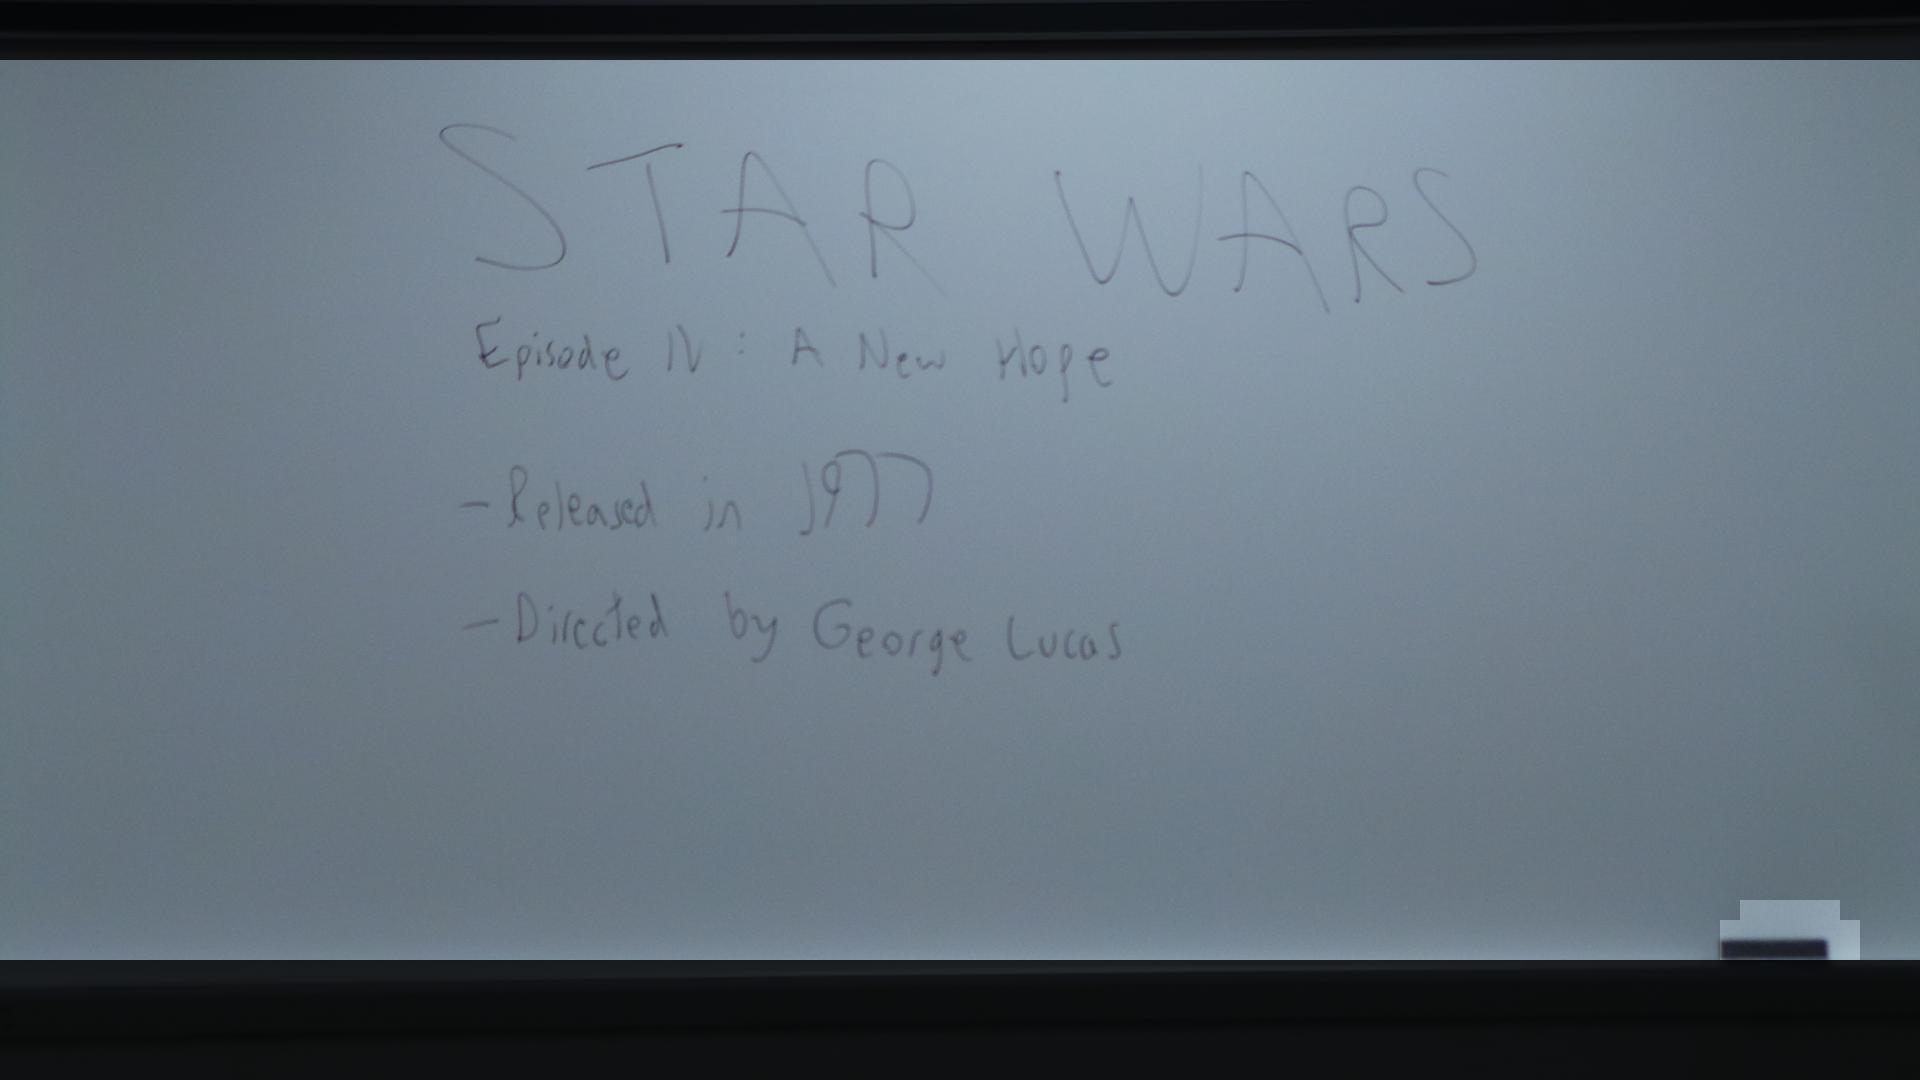 STAR WARS
Episode IV : A New Hope
- Released in 1977
- Directed by George Lucas